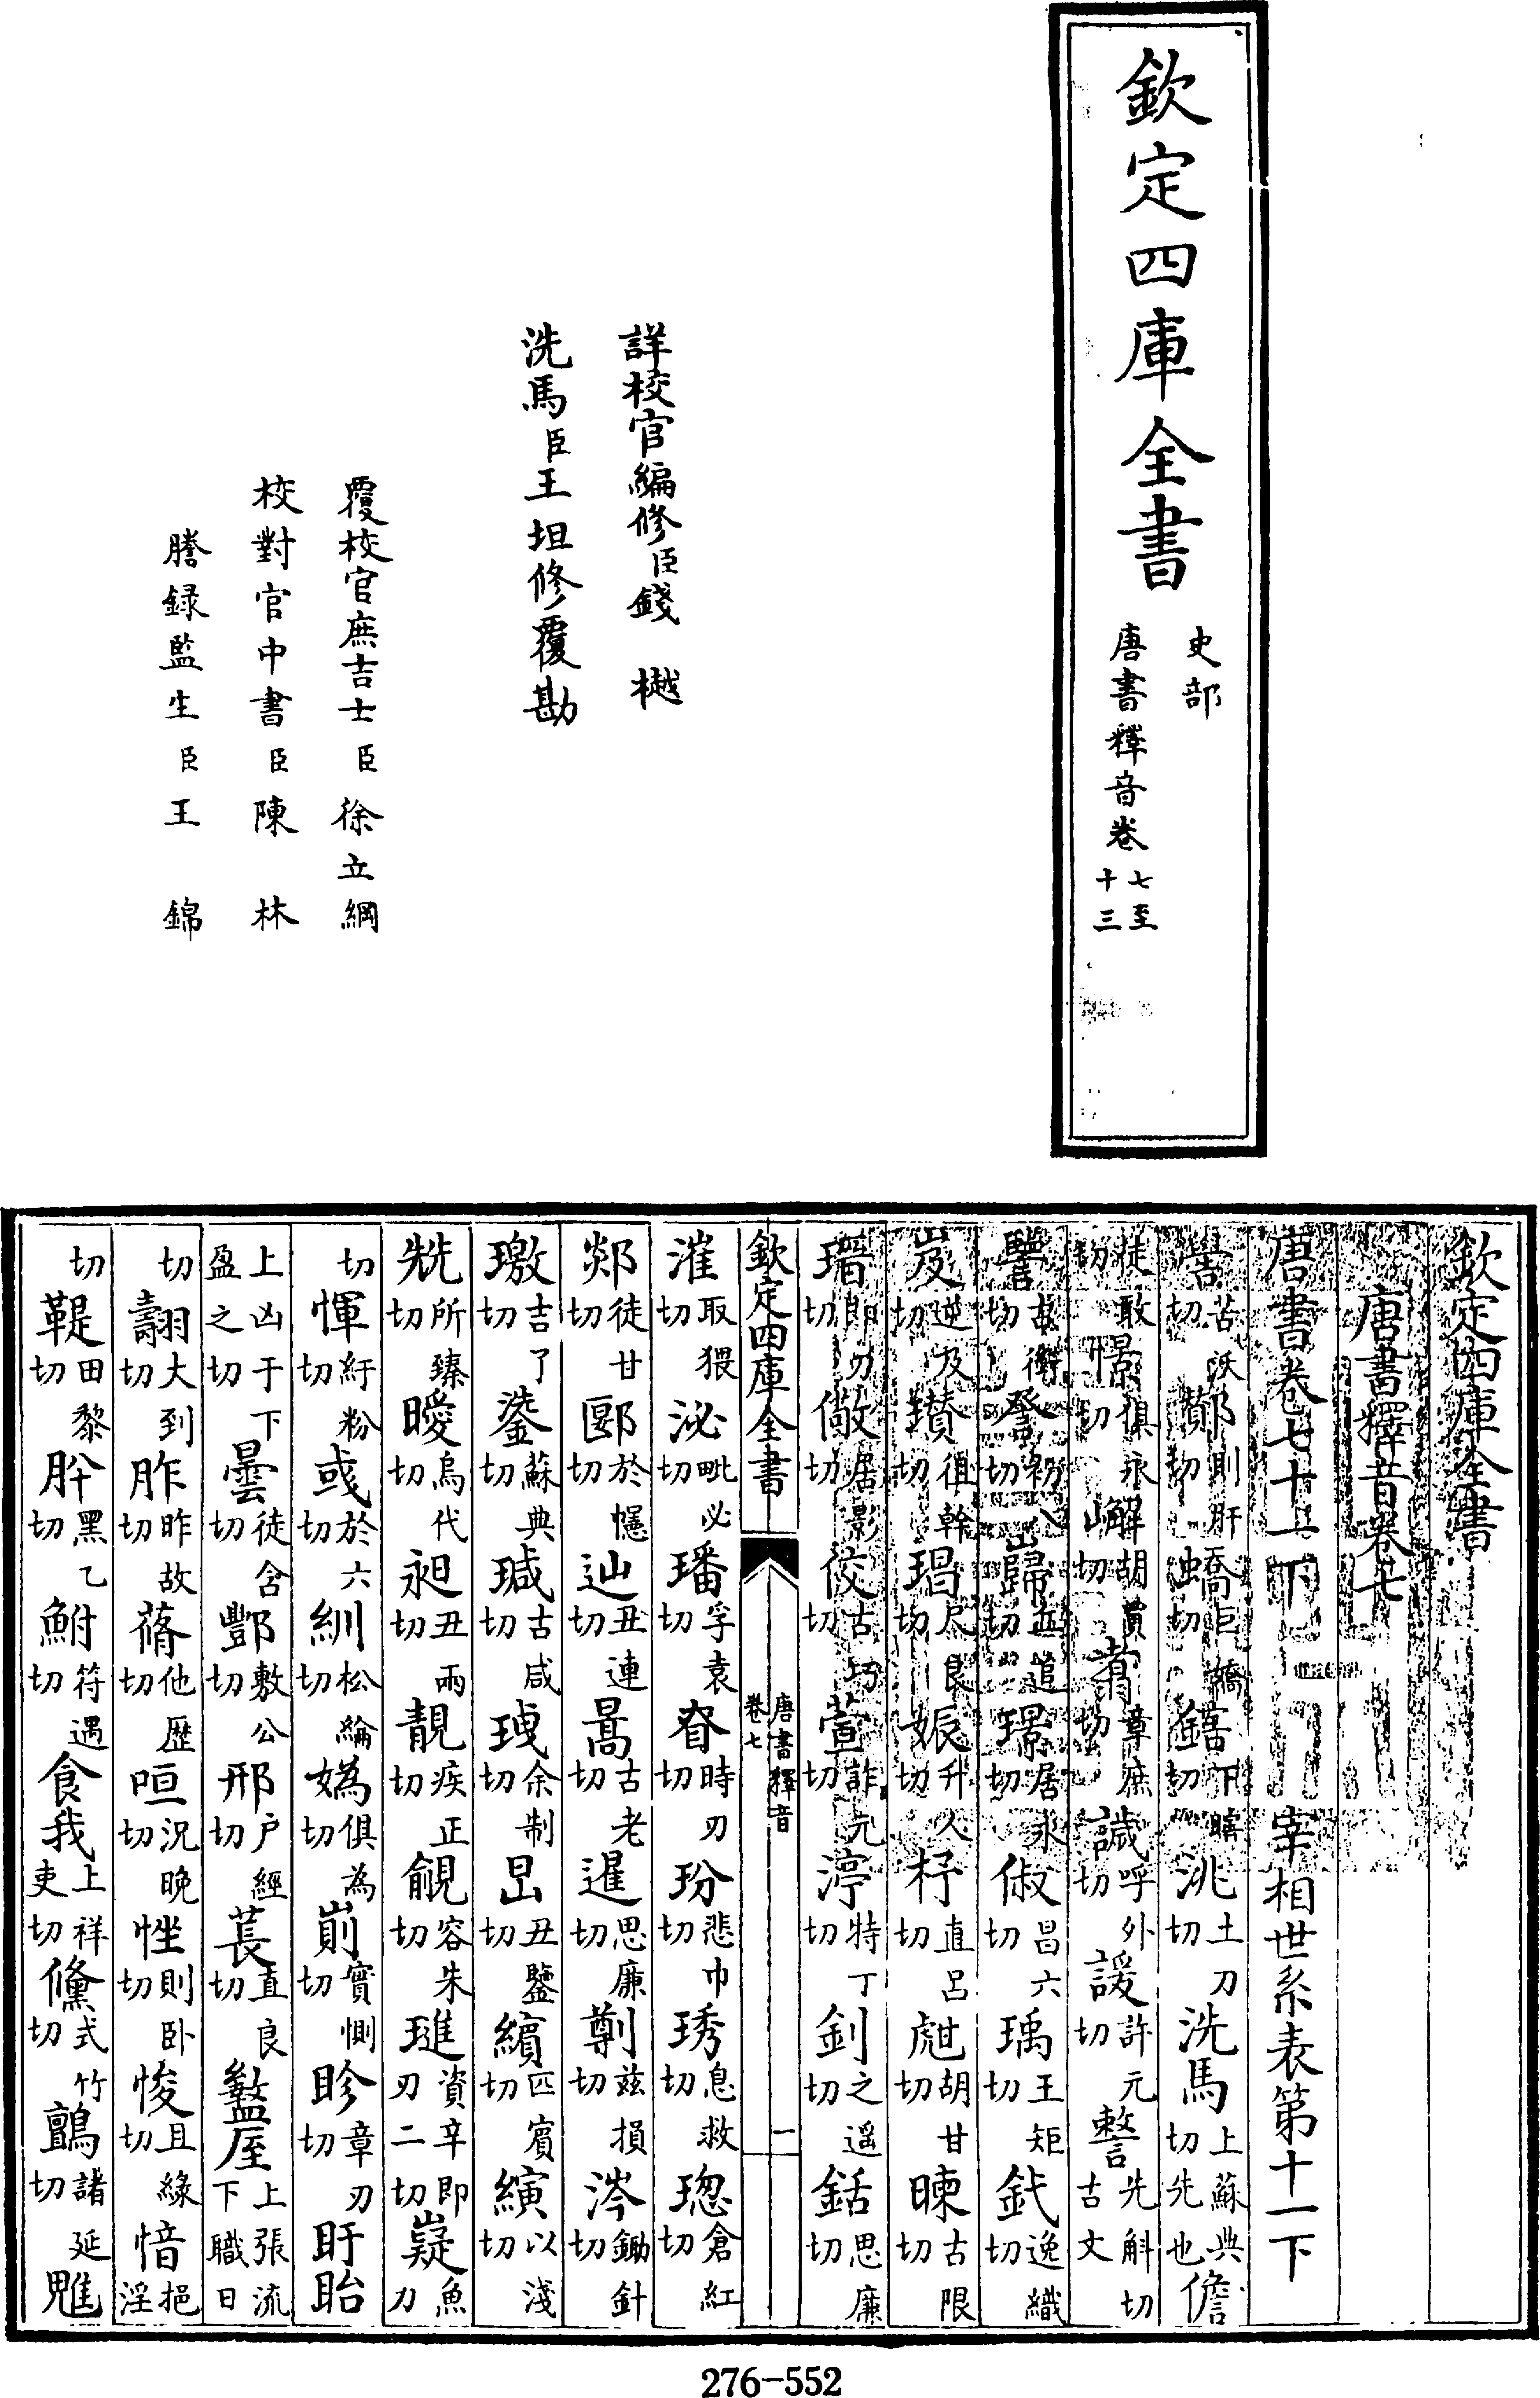 欽定四庫全書
史部
唐書釋音卷七至十三
詳校官編修臣錢樾
洗馬臣王坦修覆勘
覆校官庶吉士臣徐立綱
校對官中書臣陳林
謄録監生臣王錦
欽定四庫全書
唐書釋音卷七
唐書卷七十一下 宰相世系表第十一下
嚳苦沃切酇則肝切蟜巨嬌切鎋下瞎切洮土刀切洗馬上蘇典切先也儋
徒敢切憬俱永切嶰胡買切䓲章庶切諴呼外切諼許元切謷先斛切古文
譻古衡切詧初八切巋丘追切璟居永切俶昌六切瑀王矩切釴逸織切
岌逆及切鑽徂幹切琩尺良切娠升人切杼直呂切甝胡甘切暕古限切
瑨即刃切儆居影切佼古巧切萱許元切渟特丁切釗之遥切銛思廉切
欽定四庫全書 唐書釋音 卷七 一
漼取猥切泌毗必切璠孚袁切眘時刃切玢悲巾切琇息救切璁倉紅切
郯徒甘切郾於幰切辿丑連切暠古老切暹思廉切劕兹損切涔鋤針切
璬吉了切鍌蘇典切瑊古咸切𤣳余制切昷丑鑒切繽匹賓切縯以淺切
兟所臻切曖烏代切昶丑兩切靚疾正切覦容朱切璡資辛即刃二切嶷魚力
切惲紆粉切彧於六切紃松綸切嬀俱為切崱實惻切眕章刃切盱眙
上凶于下盈之切曇徒含切酆敷公切邢户經切萇直良切盩厔上張流下職日
切翿大到切胙昨故切蓨他歷切咺況晚切㤞則卧切悛且緣切愔挹淫
切鞮田黎切肸黑乙切鮒符遇切食我上祥吏切儵式竹切鸇諸延切魋
276-552